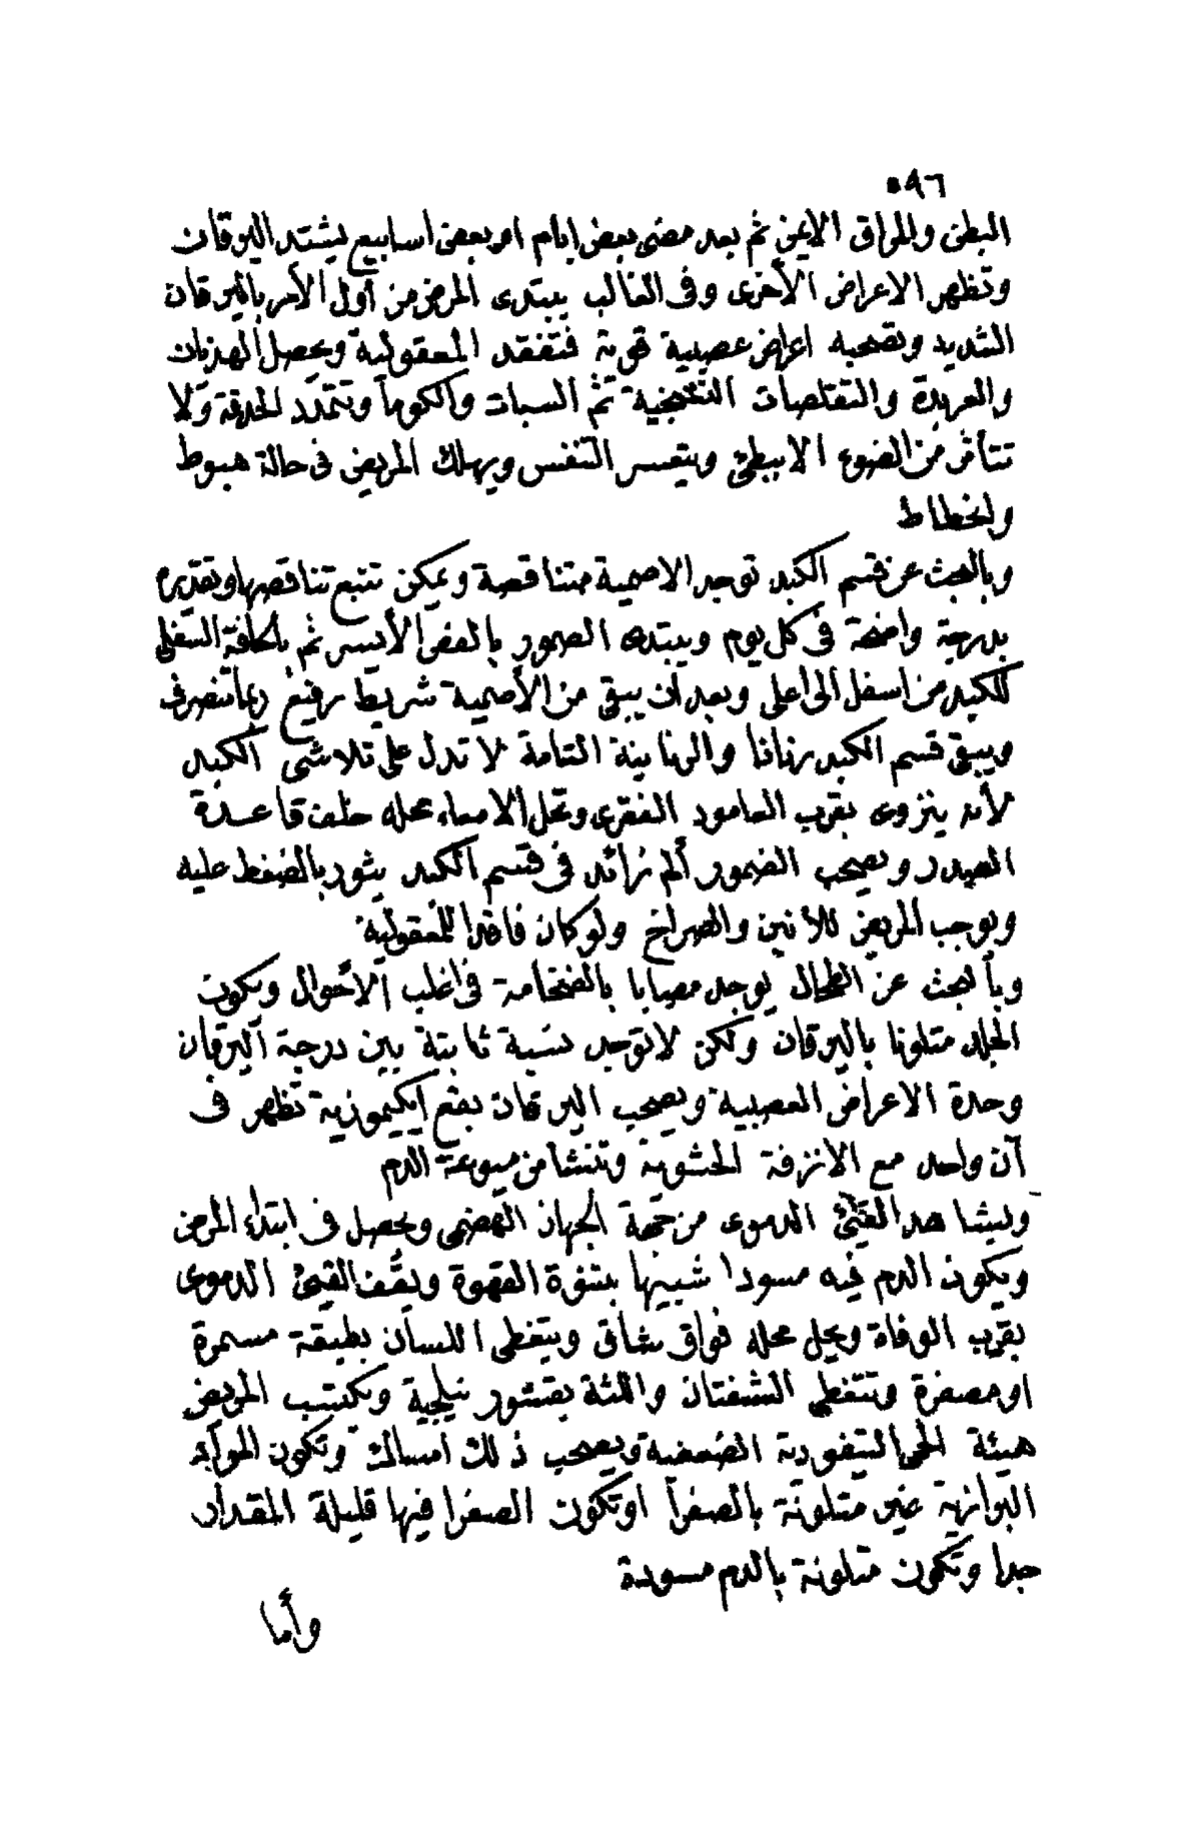 ٥٩٦
البطن والمراق الايمن ثم بعد مضى بعض ايام او بعض اسابيع يشتد اليرقان
وتظهر الاعراض الأخرى وفى الغالب يبتدى المرض من أول الأمر باليرقان
الشديد وتصحبه اعراض عصبية قوية فتفقد المعقولية ويحصل الهذيان
والعربدة والتقلصات التشنجية ثم السبات والكوما وتتمدد الحدقة ولا
تتأثر من الضوء الا ببطئ ويتعسر التنفس ويهلك المريض فى حالة هبوط
وانحطاط
وبالبحث عن قسم الكبد توجد الاصمية متناقصة ويمكن تتبع تناقصها وتقديره
بدرجة واضحة فى كل يوم ويبتدى الضمور بالفص الأيسر ثم بالحافة السفلى
للكبد من اسفل الى اعلى وبعد أن يبقى من الأصمية شريط رفيع ربما تنصرف
ويبقى قسم الكبد رنانا والرنانية التامة لا تدل على تلاشى الكبد
لأنه ينزوى بقرب العامود الفقرى وتحل الامعاء محله خلف قاعدة
الصدر ويصحب الضمور ألم زائد فى قسم الكبد يثور بالضغط عليه
ويوجب المريض للأنين والصراخ ولو كان فاقدا للمعقولية
وبالبحث عن الطحال يوجد مصابا بالضخامة فى اغلب الأحوال ويكون
الجلد متلونا باليرقان ولكن لا توجد نسبة ثابتة بين درجة اليرقان
وحدة الاعراض العصبية ويصحب اليرقان بقع ايكيموزية تظهر فى
آن واحد مع الانزفة الحشوية وتنشأ من ميوعة الدم
ويشاهد القيئ الدموى من جهة الجهاز الهضمى ويحصل فى ابتداء المرض
ويكون الدم فيه مسودا شبيها بتفوة القهوة ويقف القيئ الدموى
بقرب الوفاة ويحل محله فواق شاق ويتغطى اللسان بطبقة مسمرة
او مصفرة وتتغطى الشفتان واللثة بقشور نيلجية ويكتسب المريض
هيئة الحمى التيفودية الضعفية ويصحب ذلك امساك وتكون المواد
البرازية غير متلونة بالصفرأ او تكون الصفرا فيها قليلة المقدار
جدا وتكون متلونة بالدم مسودة
وأما